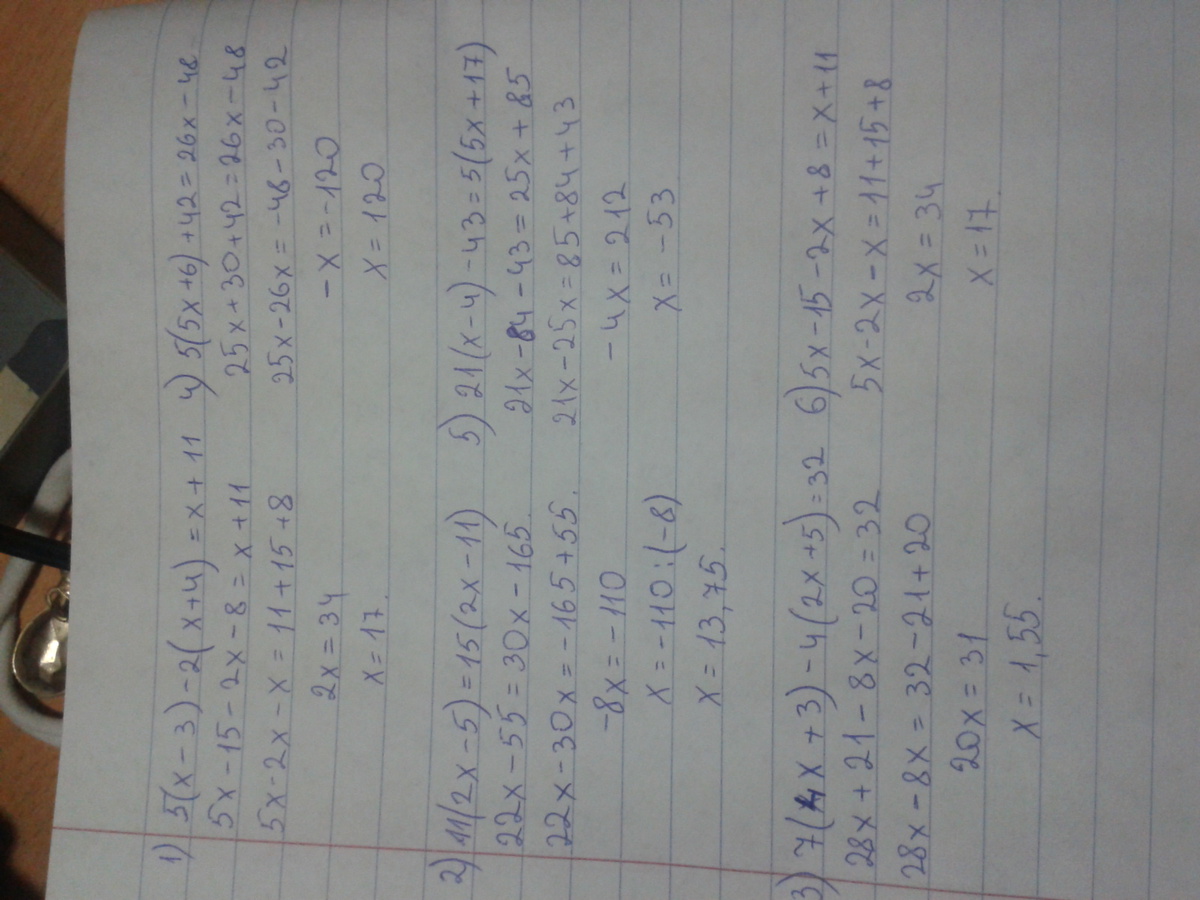 1) 5(x-3)-2(x+4)=x+11
5x-15-2x-8=x+11
5x-2x-x=11+15+8
2x=34
x=17.
4) 5(5x+6)+42=26x-48
25x+30+42=26x-48
25x-26x=-48-30-42
-x=-120
x=120
2) 11(2x-5)=15(2x-11)
22x-55=30x-165.
22x-30x=-165+55.
-8x=-110
x=-110:(-8)
x=13,75.
5) 21(x-4)-43=5(5x+17)
21x-84-43=25x+85
21x-25x=85+84+43
-4x=212
x=-53
3) 7(4x+3)-4(2x+5)=32
28x+21-8x-20=32
28x-8x=32-21+20
20x=31
x=1,55.
6) 5x-15-2x+8=x+11
5x-2x-x=11+15+8
2x=34
x=17.